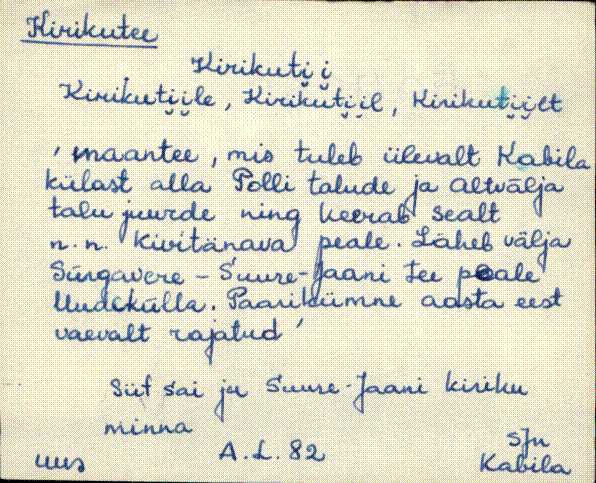 Kirikutee
Kirikuti̮i̮
Kirikuti̮i̮le, Kirikuti̮i̮l, Kirikuti̮i̮lt
' maantee, mis tuleb ülevalt Kabila
külast alla Polli talude ja Altvälja
talu juurde ning keerab sealt
n.n. Kivitänava peale. Läheb välja
Sürgavere - Suure-Jaani tee peale
Uudekülla. Paarikümne aasta eest
vaevalt rajatud '
Siit sai ju Suure-Jaani kiriku
minna
A.L. 82
SJn
uus
Kabila